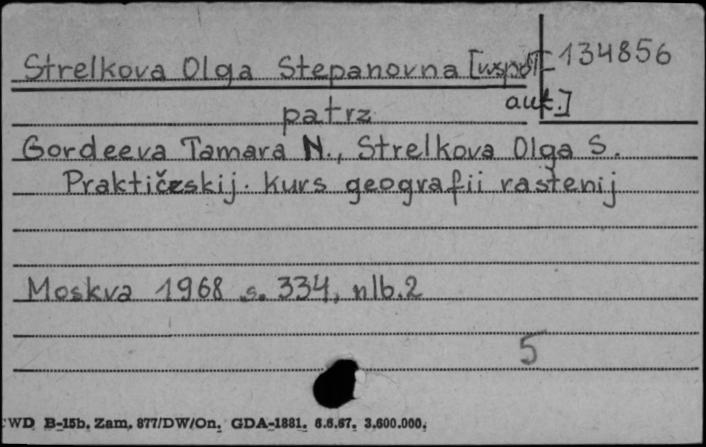 Strelkova Olga Stepanovna [współ 134856
aut.]
patrz
Gordeeva Tamara N., Strelkova Olga S.
Praktičeskij kurs geografii rastenij
Moskva 1968 s. 334, nlb. 2
5
WD B-15b. Zam. 877/DW/On. GDA-1881. 6.6.67. 3.600.000.